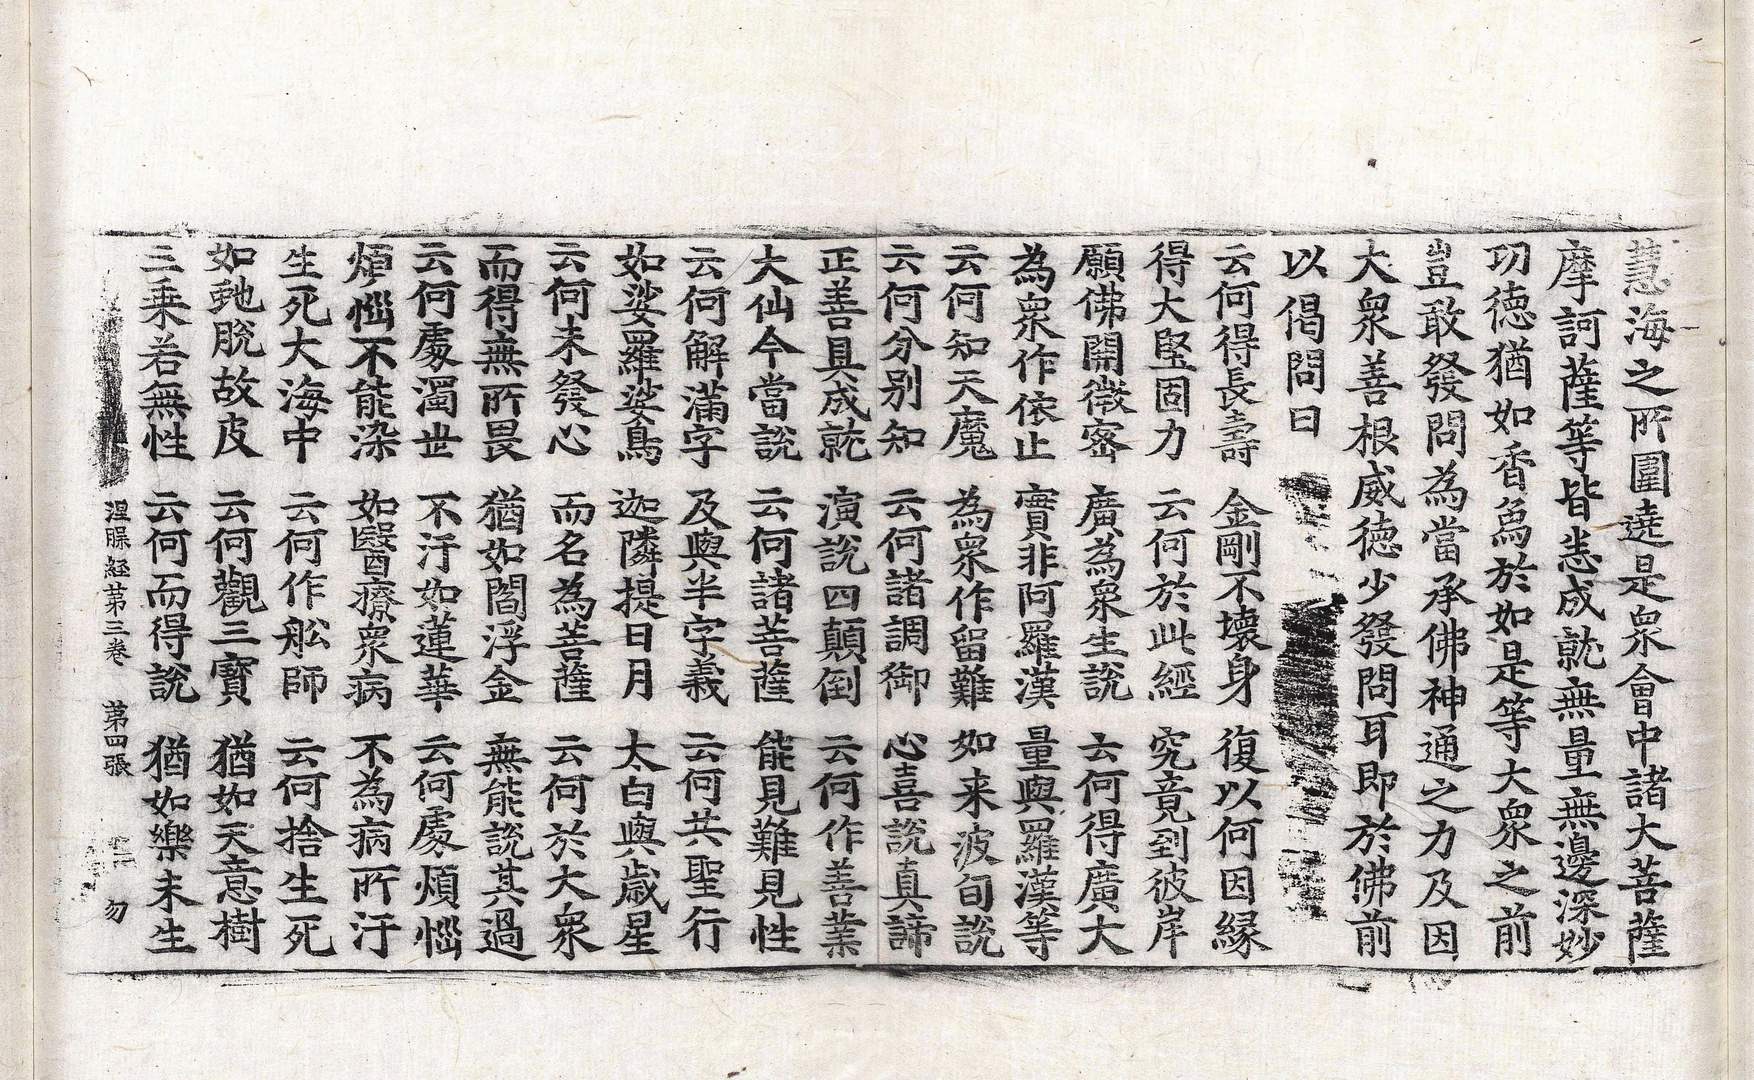 慧海之所圍遶是衆會中諸大菩薩
摩訶薩等皆悉成就無量無邊深妙
功德猶如香象於如是等大衆之前
豈敢發問為當承佛神通之力及因
大衆善根威德少發問耳即於佛前
以偈問曰
云何得長壽 金剛不壞身 復以何因緣
得大堅固力 云何於此經 究竟到彼岸
願佛開微密 廣為衆生說 云何得廣大
為衆作依止 實非阿羅漢 量與羅漢等
云何知天魔 為衆作留難 如来波旬說
云何分別知 云何諸調御 心喜說真諦
正善具成就 演說四顛倒 云何作善業
大仙今當說 云何諸菩薩 能見難見性
云何解滿字 及與半字義 云何共聖行
如娑羅娑鳥 迦隣提日月 太白與歲星
云何未發心 而名為菩薩 云何於大衆
而得無所畏 猶如閻浮金 無能說其過
云何處濁世 不汙如蓮華 云何處煩惱
煩惱不能染 如醫療衆病 不為病所汙
生死大海中 云何作舩師 云何捨生死
如虵脫故皮 云何觀三寶 猶如天意樹
三乘若無性 云何而得說 猶如樂未生
涅槃経第三卷 第四張 勿